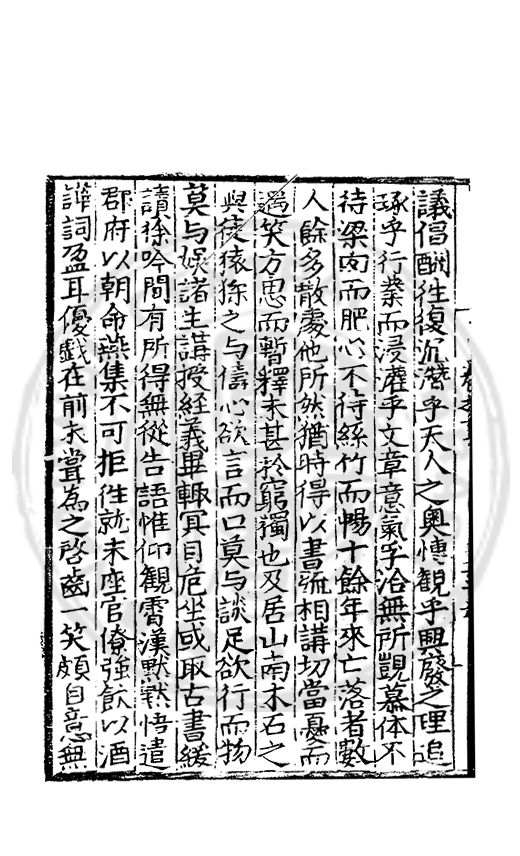 議倡酬往復沉潛乎天人之奧慱觀乎興廢之理追
琢乎行業而浸灌乎文章意氣孚洽無所覬慕体不
待梁肉而肥心不待絲竹而暢十餘年來亡落者數
人餘多散處他所然猶時得以書疏相講切當憂而
遇笑方思而暫釋未甚於窮獨也及居山南木石之
與徒猿狖之与儔心欲言而口莫与談足欲行而物
莫与娯諸生講授經義畢輒冥目危坐或取古書緩
讀徐吟間有所得無從告語惟仰觀霄漢黙黙悟遣
郡府以朝命燕集不可拒徃就末座官僚強飲以酒
詳詞盈耳優戱在前未甞為之啓齒一笑頗自意無